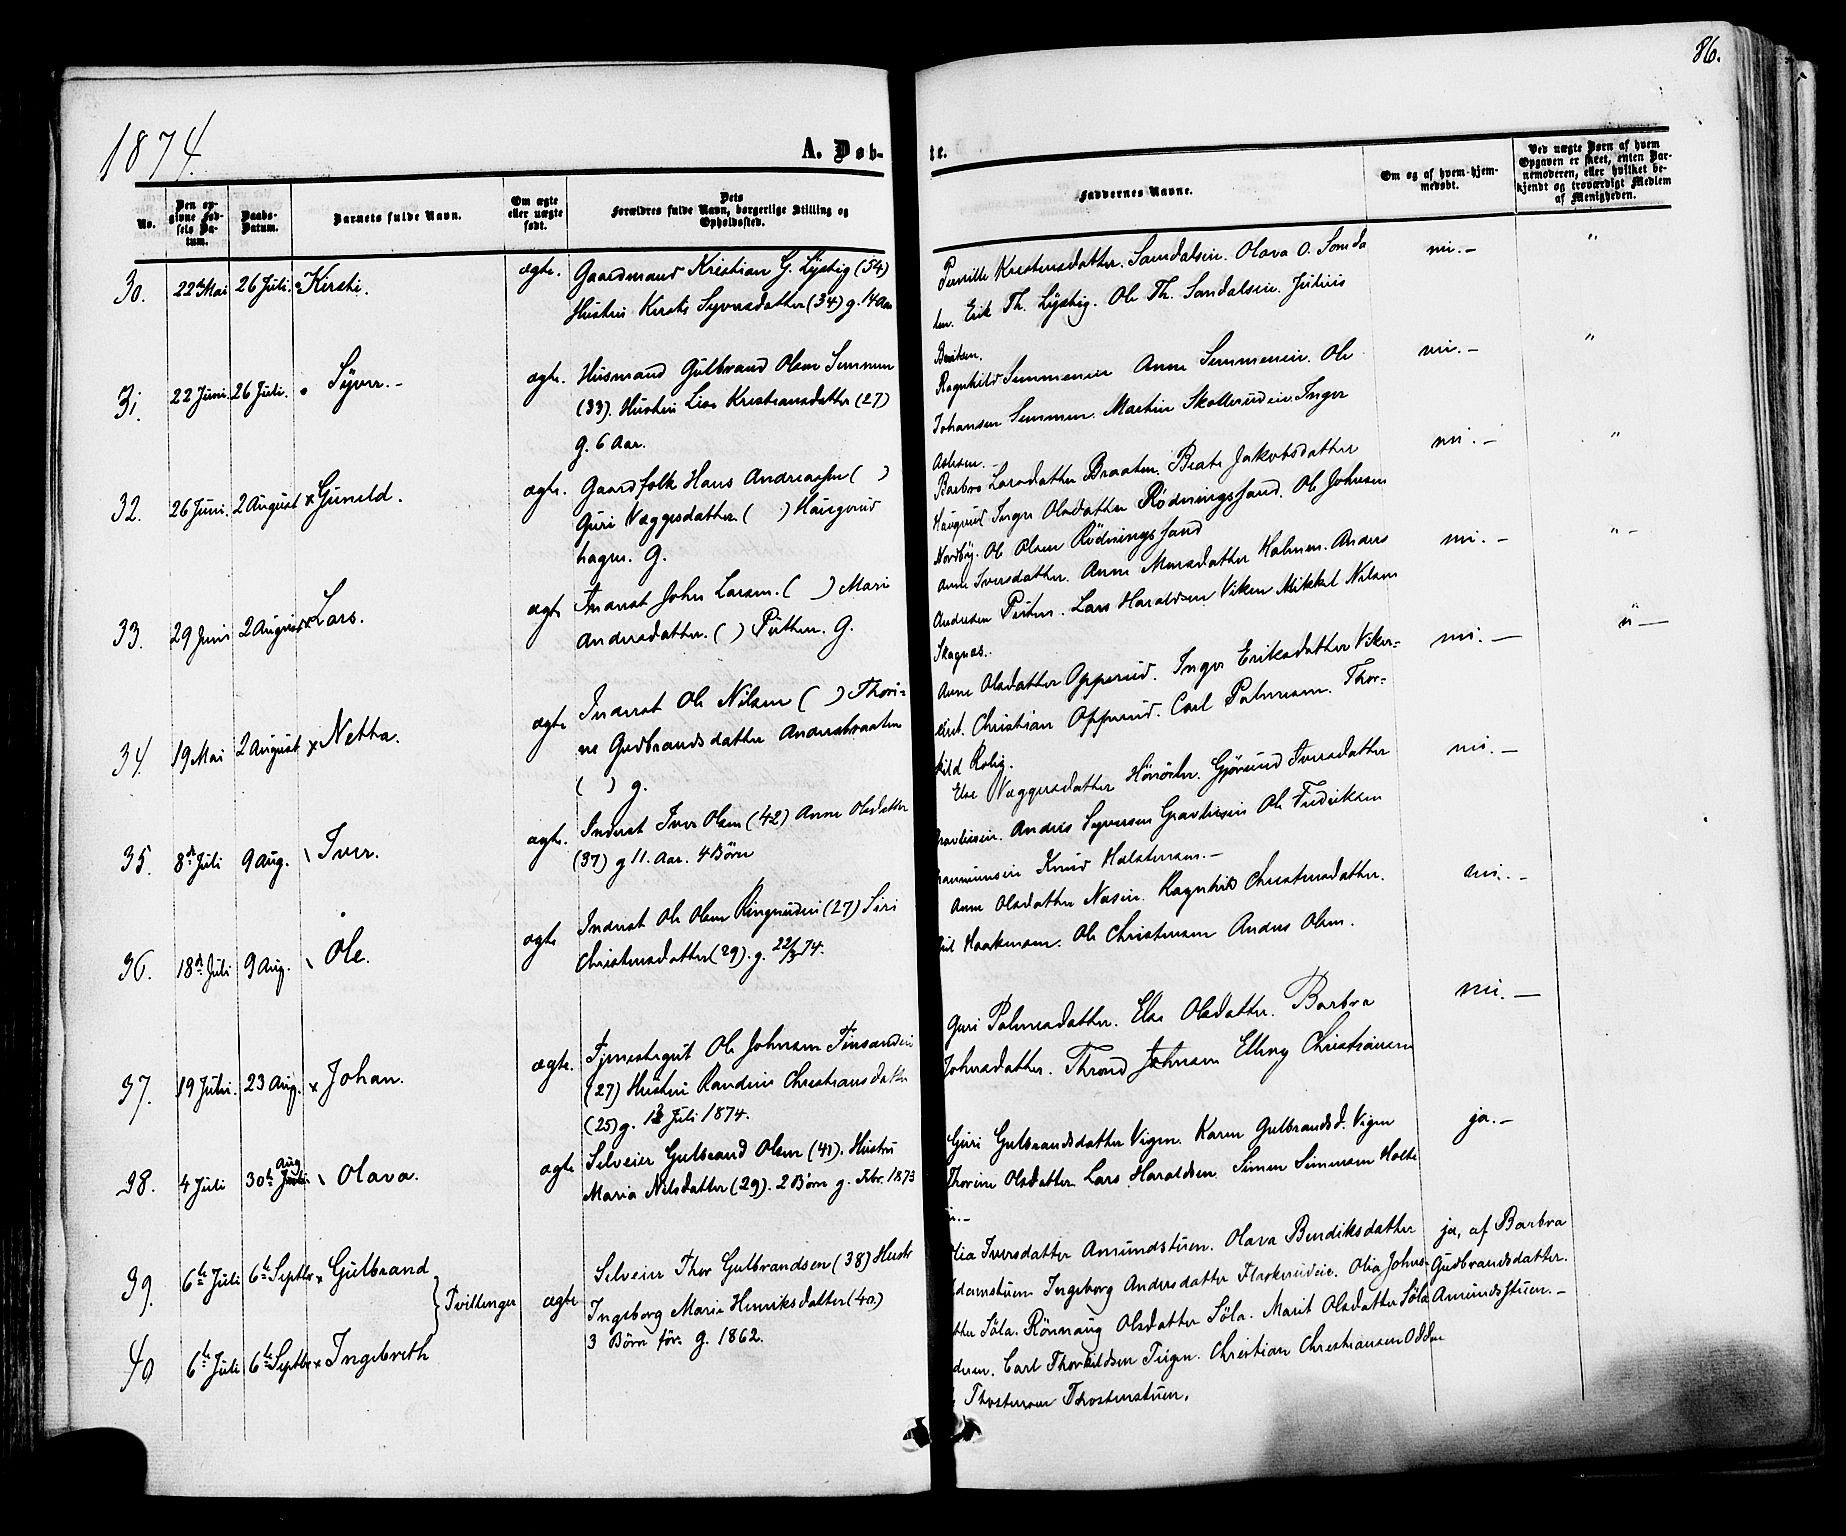 86.
1874.
A. Døb-
te.
No.
Den opgivne Fødsels Datum.
Daabs-Datum.
Barnets fulde Navn.
Om ægte eller uægte født.
Dets Forældres fulde Navn, borgerlige Stilling og Opholdssted.
Faddernes Navne.
Om og af hvem hjemmedøbt.
Ved uægte Børn af hvem Opgaven er skeet, enten Barnemoderen, eller hvilket bekjendt og troværdigt Medlem af Menigheden.
30. 22de Mai 26 Juli. Kirsti. ægte. Gaardmand Kristian G. Lystig (54)
Hustru Kirsti Syversdatter (34) g. 14 Aar
Pernille Kristensdatter. Sandalseie. Olava O. Sanda
len. Erik Th. Lystig. Ole Th. Sandalseie. Julius
Bentsen. ni. — "
31. 22 Juni. 26 Juli. Syver. — ægte. Husmand Gulbrand Olsen Semmen
(33). Hustru Lise Kristiansdatter (27)
g. 6 Aar.
Ragnhild Semmeneie Anne Semmeneie. Ole
Johansen Semmen. Martin Skollerudeie. Inger
Aslesen. — ni. — "
32. 26 Juni. 2 August x Gunild. ægte. Gaardfolk Hans Andreassen ( )
Guri Væggersdatter. ( ) Haugerud
hagen. G.
Barbro Larsdatter Braaten. Beate Jakobsdatter
Haugerud Inger Olsdatter Rødningssand. Ole Johnsen
Nordby. Ole Olsen Rødningssand ni. — "
33. 29 Juni 2 August x Lars. ægte Inderst John Larsen. ( ) Mari
Andersdatter. ( ) Pütten. G.
Anne Iversdatter. Anne Monsdatter Holmen. Anders
Andersen Pütten. Lars Haraldsen Viken Mikkel Nilsen
Skagnæs. ni. — " —
34. 19 Mai 2 August x Netta. ægte Inderst Ole Nilsen ( ) Thori-
ne Gudbrandsdatter Andersbraaten
( ) g.
Anne Olsdatter Opperud. Inger Eriksdatter Viker-
eiet. Christian Opperud. Carl Palmesen. Thor-
kild Rolig. ni. — " —
35. 8de Juli 9 Aug. Iver. ægte. Inderst Iver Olsen (42) Anne Olsdatter
(37) g 11. Aar. 4 Børn
Else Væggersdatter Gjørund Iversdatter
Gravlieseie. Anders Syversen Gravlieseie Ole Fredriksen
Knud Halstensen. — ni. —
36. 18de Juli 9 Aug. Ole. ægte Inderst Ole Olsen Ringerudei (27) Siri
Christensdatter (29). g. 22/3 74.
Anne Olsdatter Næseie. Ragnhild Christensdatter.
Haakensen. Ole Christensen Anders Olsen. ni. —
37. 19 Juli. 23 Aug. x Johan. ægte. Tjenestegut Ole Johnsen Finsandeie
(27) Hustru Randine Christiansdatter
(25) g. 12 Juli 1874.
Guri Palmesdatter. Else Olsdatter. Barbra
Johnsdatter. Thrond Johnsen Elling Christiansen ni. —
38. 4 Juli 30te Aug Olava. ægte Selveier Gulbrand Olsen (41). Hustru
Maria Nilsdatter (29). 2 Børn g. Febr. 1873
Guri Gulbrandsdatter Vigen. Karen Gulbrandsd. Vigen
Thorine Olsdatter Lars Haraldsen. Simen Simensen Holte ja. —
39. 6te Juli 6te Septbr x Gulbrand
Tvillinger ægte Selveier Thor Gulbrandsen (38) Hustr
Ingeborg Marie Henriksdatter (40.)
3 Børn før. g. 1862.
40 6te Juli 6te Septbr x Ingebreth
Olia Iversdatter Amundstuen. Olava Bendiksdatter
Adamstuen Ingeborg Andersdatter Flaskerudeie. Olia Johns-
datter Søla. Rønnaug Olsdatter Søla. Marit Olsdatter Søla
Carl Thorkildsen Tugen. Christian Christiansen Odden
Thostensen Thostenstuen.
ja, af Barbra
Gudbrandsdatter.
Amundsstuen. —